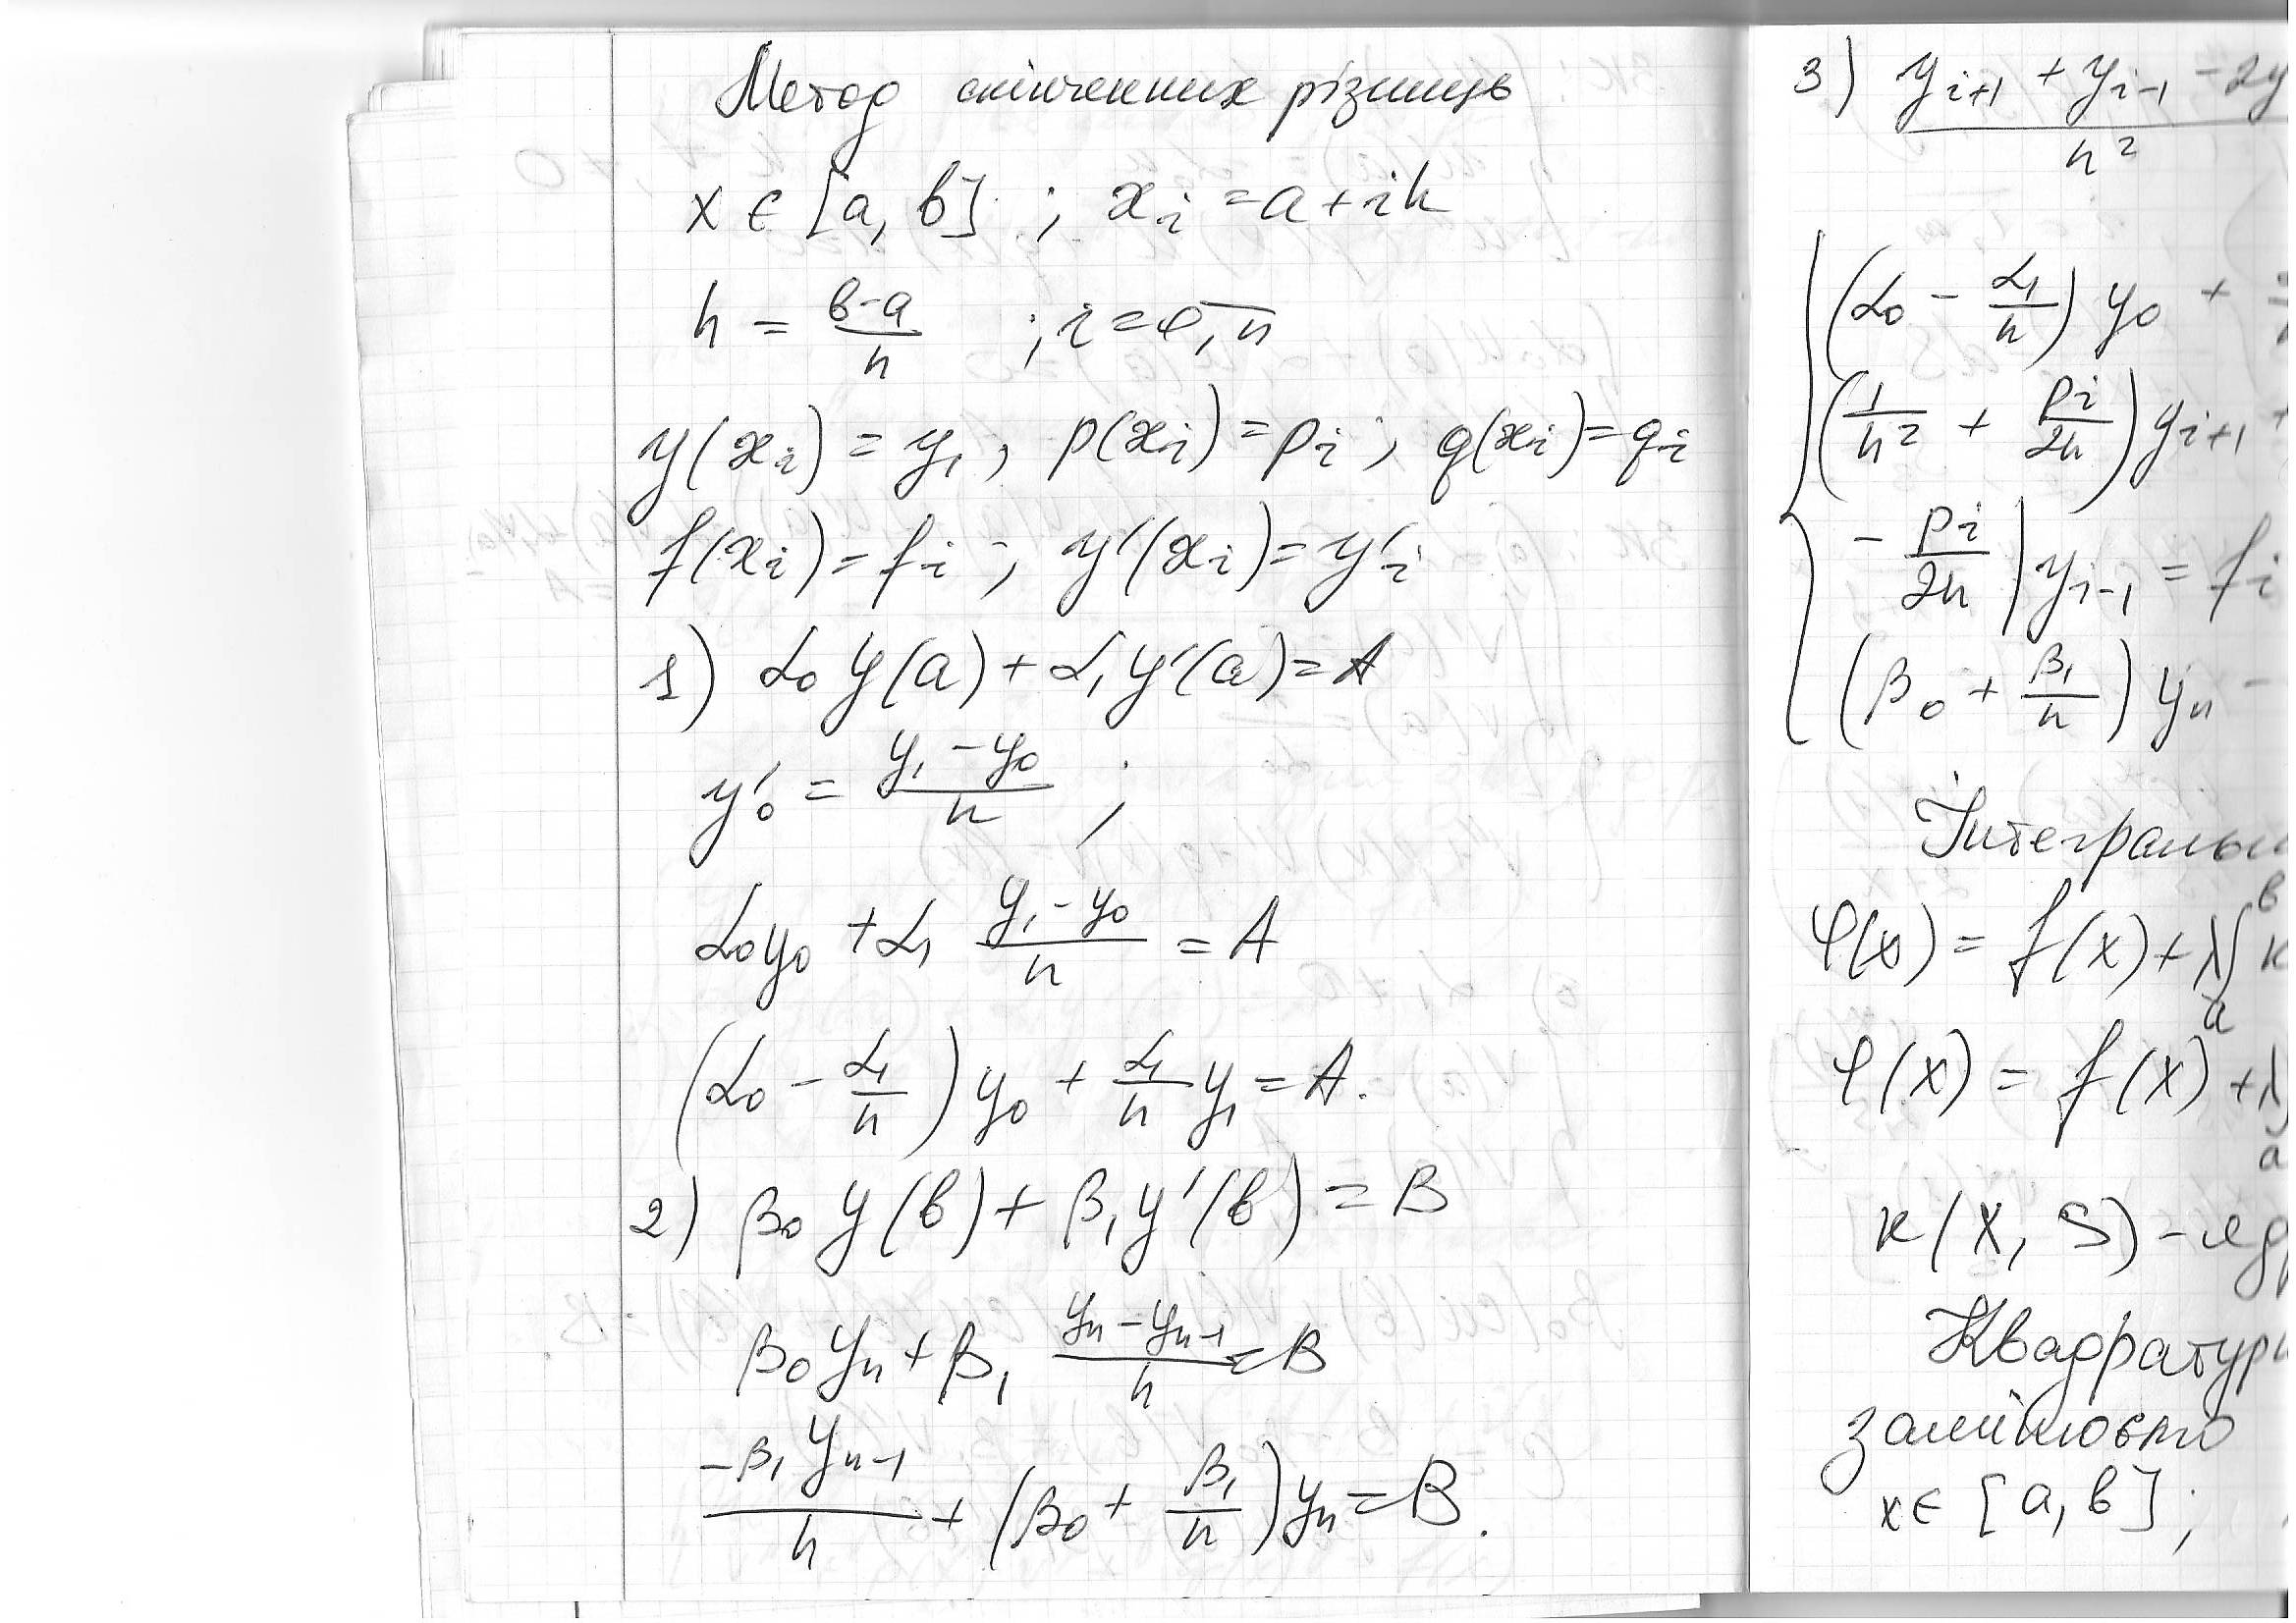 Метод скінченних різниць
x ∈ [a, b] ; x_i = a + ih
h = (b-a)/n ; i = 0,n
y(x_i) = y_1, p(x_i) = p_i, q(x_i) = q_i
f(x_i) = f_i ; y'(x_i) = y'_i
1) α_0 y(a) + α_1 y'(a) = A
y'_0 = (y_1 - y_0)/h ;
α_0 y_0 + α_1 (y_1 - y_0)/h = A
(α_0 - α_1/h) y_0 + α_1/h y_1 = A.
2) β_0 y(b) + β_1 y'(b) = B
β_0 y_n + β_1 (y_n - y_{n-1})/h = B
-β_1 y_{n-1}/h + (β_0 + β_1/h) y_n = B.
3) (y_{i+1} + y_{i-1} - 2y)/h²
(α_0 - α_1/h) y_0 +
(1/h² + p_i/2h) y_{i+1} +
- p_i/2h) y_{i-1} = f_i
(β_0 + β_1/h) y_n -
φ(x) = f(x) + λ ∫_a^b K
φ(x) = f(x) + λ
a
K(x, S) -
x ∈ [a, b];